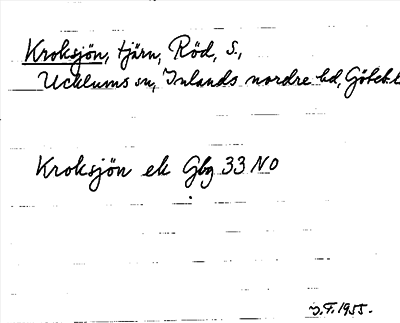 Kroksjön, tjärn, Röd, S.,
Ucklums sn, Inlands nordre hd, Göteb.l
Kroksjön ek Gbg 33 NO
J.F. 1955.